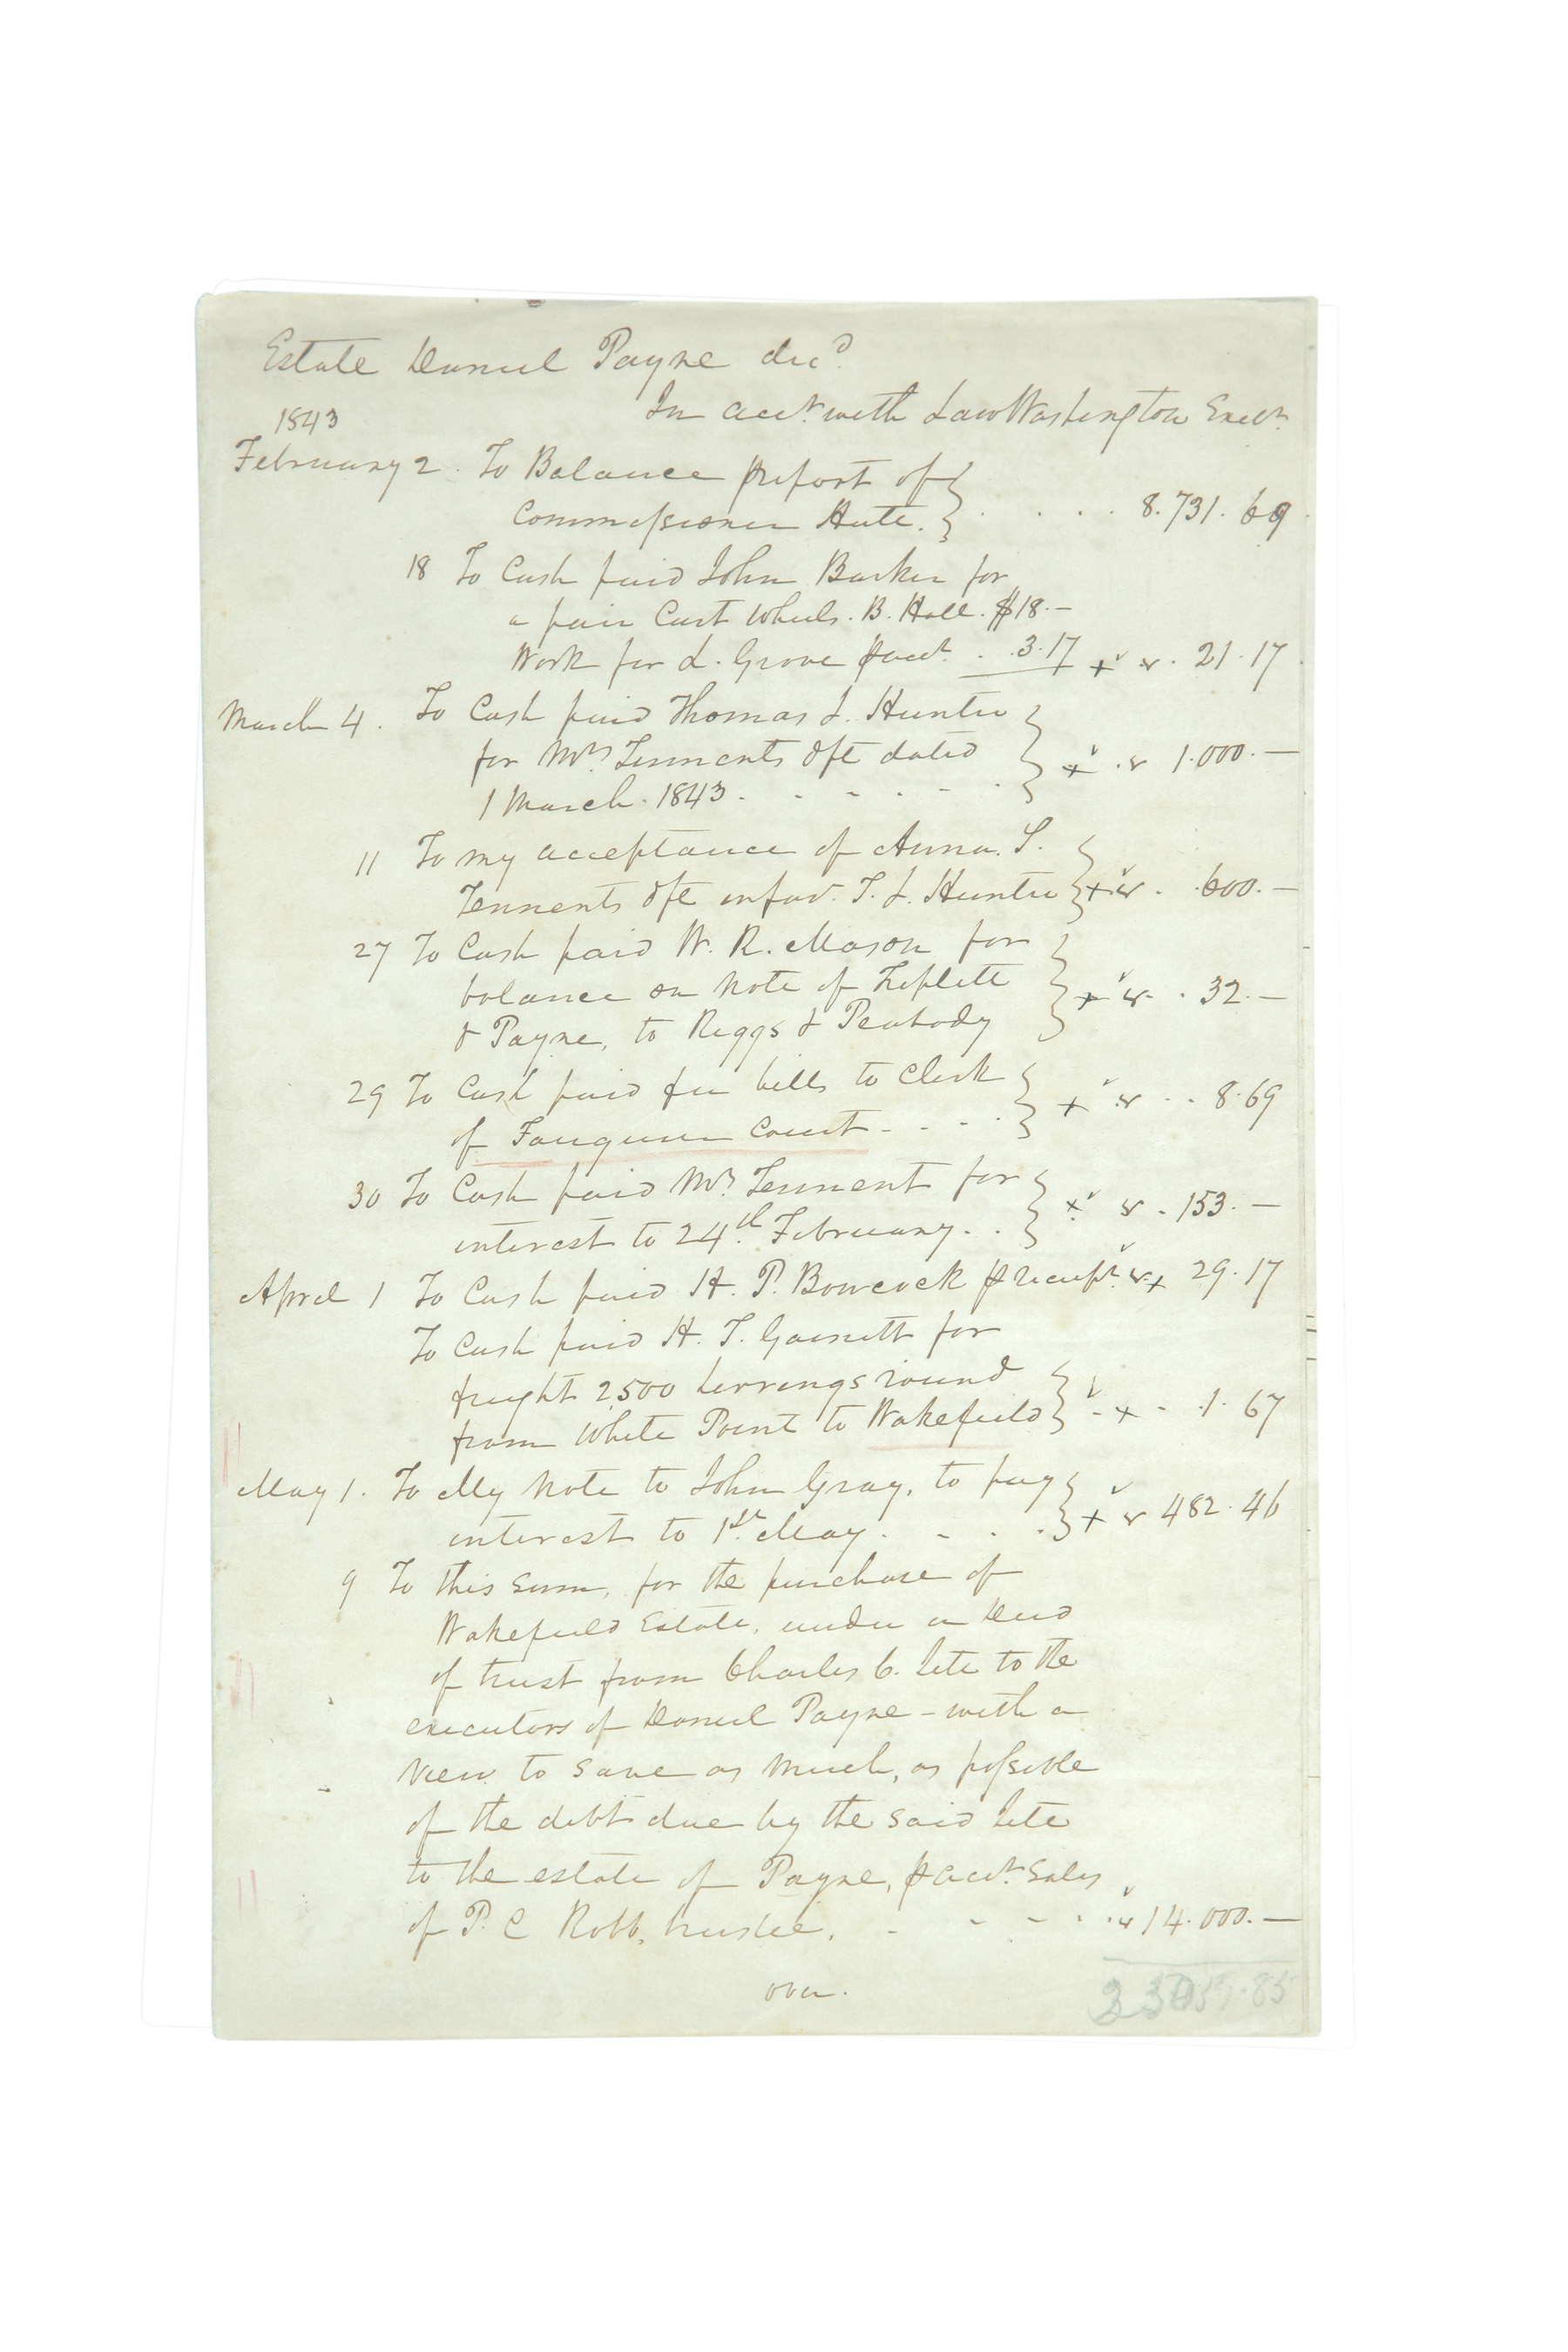 Estate Daniel Payne dec^d
In acct. with Law Washington Exect.
1843
February 2. To Balance ⅌ report of
Commissioner Hute. 8.731.69
18 To Cash paid John Barker for
a pair Cart Wheels. B. Hall. $18.—
Work for L. Grove ⅌ acct. 3.17 21.17
March 4. To Cash paid Thomas L. Hunter
for Mrs. Tennents dft dated 1.000.—
1 March. 1843.
11 To my acceptance of Anna. S.
Tennents dft infav. T. L. Hunter 600.—
27 To Cash paid W. R. Mason for
balance on Note of Triplett 32.—
& Payne, to Riggs & Peabody
29 To Cash paid fee bills to Clerk
of Fauquier Court 8.69
30 To Cash paid Mrs. Tennent for
interest to 24th. February. 153.—
April 1 To Cash paid H. P. Bowcock ⅌ receipt. 29.17
To Cash paid H. T. Garnett for
freight 2500 herrings round
from White Point to Wakefield 1.67
May 1. To My Note to John Gray, to pay
interest to 1st. May. 482.46
9 To this sum, for the purchase of
Wakefield Estate, under a Deed
of trust from Charles C. Jett to the
executors of Daniel Payne - with a
view to save as much, as possible
of the debt due by the said Jett
to the estate of Payne, ⅌ acct. Sales
of P. C Robb, trustee. 14.000.—
over.